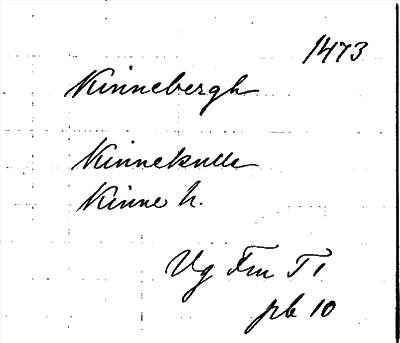 1473
Kinnebergh
Kinnekulle
Kinne h.
Vg Fm T 1
pb 10